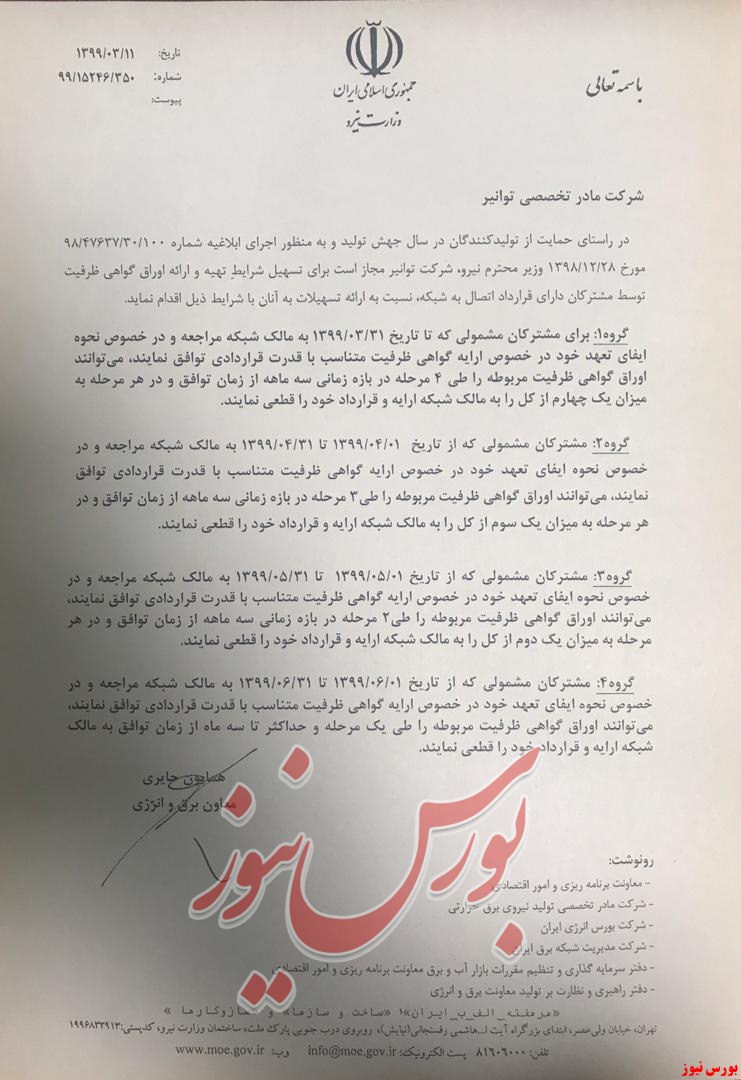 باسمه تعالی
جمهوری اسلامی ایران
وزارت نیرو
تاریخ: ۱۳۹۹/۰۳/۱۱
شماره: ۹۹/۱۵۲۴۶/۳۵۰
پیوست:
شرکت مادر تخصصی توانیر
در راستای حمایت از تولیدکنندگان در سال جهش تولید و به منظور اجرای ابلاغیه شماره ۹۸/۴۷۶۳۷/۳۰/۱۰۰
مورخ ۱۳۹۸/۱۲/۲۸ وزیر محترم نیرو، شرکت توانیر مجاز است برای تسهیل شرایط تهیه و ارائه اوراق گواهی ظرفیت
توسط مشترکان دارای قرارداد اتصال به شبکه، نسبت به ارائه تسهیلات به آنان با شرایط ذیل اقدام نماید.
گروه۱: برای مشترکان مشمولی که تا تاریخ ۱۳۹۹/۰۳/۳۱ به مالک شبکه مراجعه و در خصوص نحوه
ایفای تعهد خود در خصوص ارایه گواهی ظرفیت متناسب با قدرت قراردادی توافق نمایند، می‌توانند
اوراق گواهی ظرفیت مربوطه را طی ۴ مرحله در بازه زمانی سه ماهه از زمان توافق و در هر مرحله به
میزان یک چهارم از کل را به مالک شبکه ارایه و قرارداد خود را قطعی نمایند.
گروه۲: مشترکان مشمولی که از تاریخ ۱۳۹۹/۰۴/۰۱ تا ۱۳۹۹/۰۴/۳۱ به مالک شبکه مراجعه و در
خصوص نحوه ایفای تعهد خود در خصوص ارایه گواهی ظرفیت متناسب با قدرت قراردادی توافق
نمایند، می‌توانند اوراق گواهی ظرفیت مربوطه را طی۳ مرحله در بازه زمانی سه ماهه از زمان توافق و در
هر مرحله به میزان یک سوم از کل را به مالک شبکه ارایه و قرارداد خود را قطعی نمایند.
گروه۳: مشترکان مشمولی که از تاریخ ۱۳۹۹/۰۵/۰۱ تا ۱۳۹۹/۰۵/۳۱ به مالک شبکه مراجعه و در
خصوص نحوه ایفای تعهد خود در خصوص ارایه گواهی ظرفیت متناسب با قدرت قراردادی توافق نمایند،
می‌توانند اوراق گواهی ظرفیت مربوطه را طی۲ مرحله در بازه زمانی سه ماهه از زمان توافق و در هر
مرحله به میزان یک دوم از کل را به مالک شبکه ارایه و قرارداد خود را قطعی نمایند.
گروه۴: مشترکان مشمولی که از تاریخ ۱۳۹۹/۰۶/۰۱ تا ۱۳۹۹/۰۶/۳۱ به مالک شبکه مراجعه و در
خصوص نحوه ایفای تعهد خود در خصوص ارایه گواهی ظرفیت متناسب با قدرت قراردادی توافق نمایند،
می‌توانند اوراق گواهی ظرفیت مربوطه را طی یک مرحله و حداکثر تا سه ماه از زمان توافق به مالک
شبکه ارایه و قرارداد خود را قطعی نمایند.
همایون حایری
معاون برق و انرژی
بورس نیوز
رونوشت:
- معاونت برنامه ریزی و امور اقتصادی
- شرکت مادر تخصصی تولید نیروی برق حرارتی
- شرکت بورس انرژی ایران
- شرکت مدیریت شبکه برق ایران
- دفتر سرمایه گذاری و تنظیم مقررات بازار آب و برق معاونت برنامه ریزی و امور اقتصادی
- دفتر راهبری و نظارت بر تولید معاونت برق و انرژی
«#هرهفته_الف_ب_ایران»؛ «ساخت و سازها» و «سازوکارها»
تهران، خیابان ولی‌عصر، ابتدای بزرگراه آیت ا...هاشمی رفسنجانی(نیایش)، روبروی درب جنوبی پارک ملت، ساختمان وزارت نیرو، کدپستی:۱۹۹۶۸۳۳۹۱۳
تلفن: ۸۱۶۰۶۰۰۰ پست الکترونیک: info@moe.gov.ir وب: www.moe.gov.ir
بورس نیوز